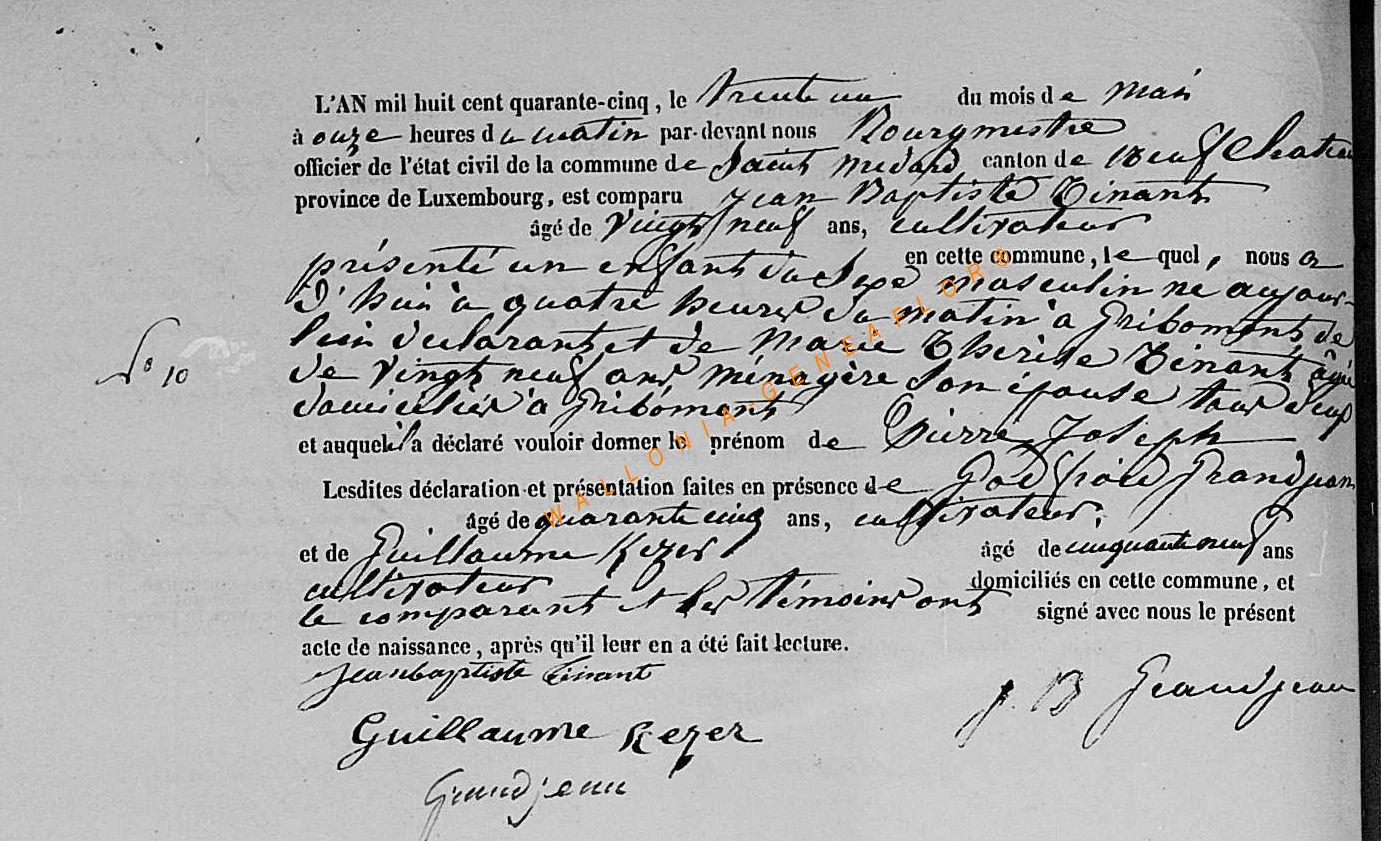 L'AN mil huit cent quarante-cinq, le trente un du mois de mai
à onze heures du matin par-devant nous Bourgmestre
officier de l'état civil de la commune de Saint Medard canton de Neufchateau
province de Luxembourg, est comparu Jean Baptiste Tinant
âgé de vingt neuf ans, cultivateur
en cette commune, le quel, nous a
présenté un enfant du sexe masculin ne aujour-
d'huis à quatre heures du matin à Gribomont de
lui declarant et de Marie Therese Tinant âgée
N° 10
de vingt neuf ans ménagère son épouse tous deux
domiciliés à Gribomont
et auquel il a déclaré vouloir donner le prénom de Pierre Joseph
Lesdites déclaration et présentation faites en présence de Godfroid Grandjean
âgé de quarante cinq ans, cultivateur,
et de Guillaume Kezer âgé de cinquante neuf ans
cultivateur domiciliés en cette commune, et
le comparant et les témoins ont signé avec nous le présent
acte de naissance, après qu'il leur en a été fait lecture.
Jeanbaptiste tinant
J. B Grandjean
Guillaume Kezer
Grandjean
WALLONIA-GENEAFLOR®